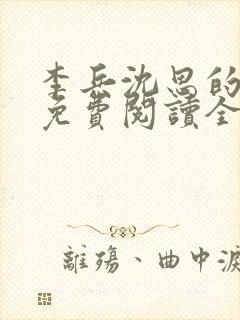 李岳沈思的
免費閱讀全
離殤、曲中淚